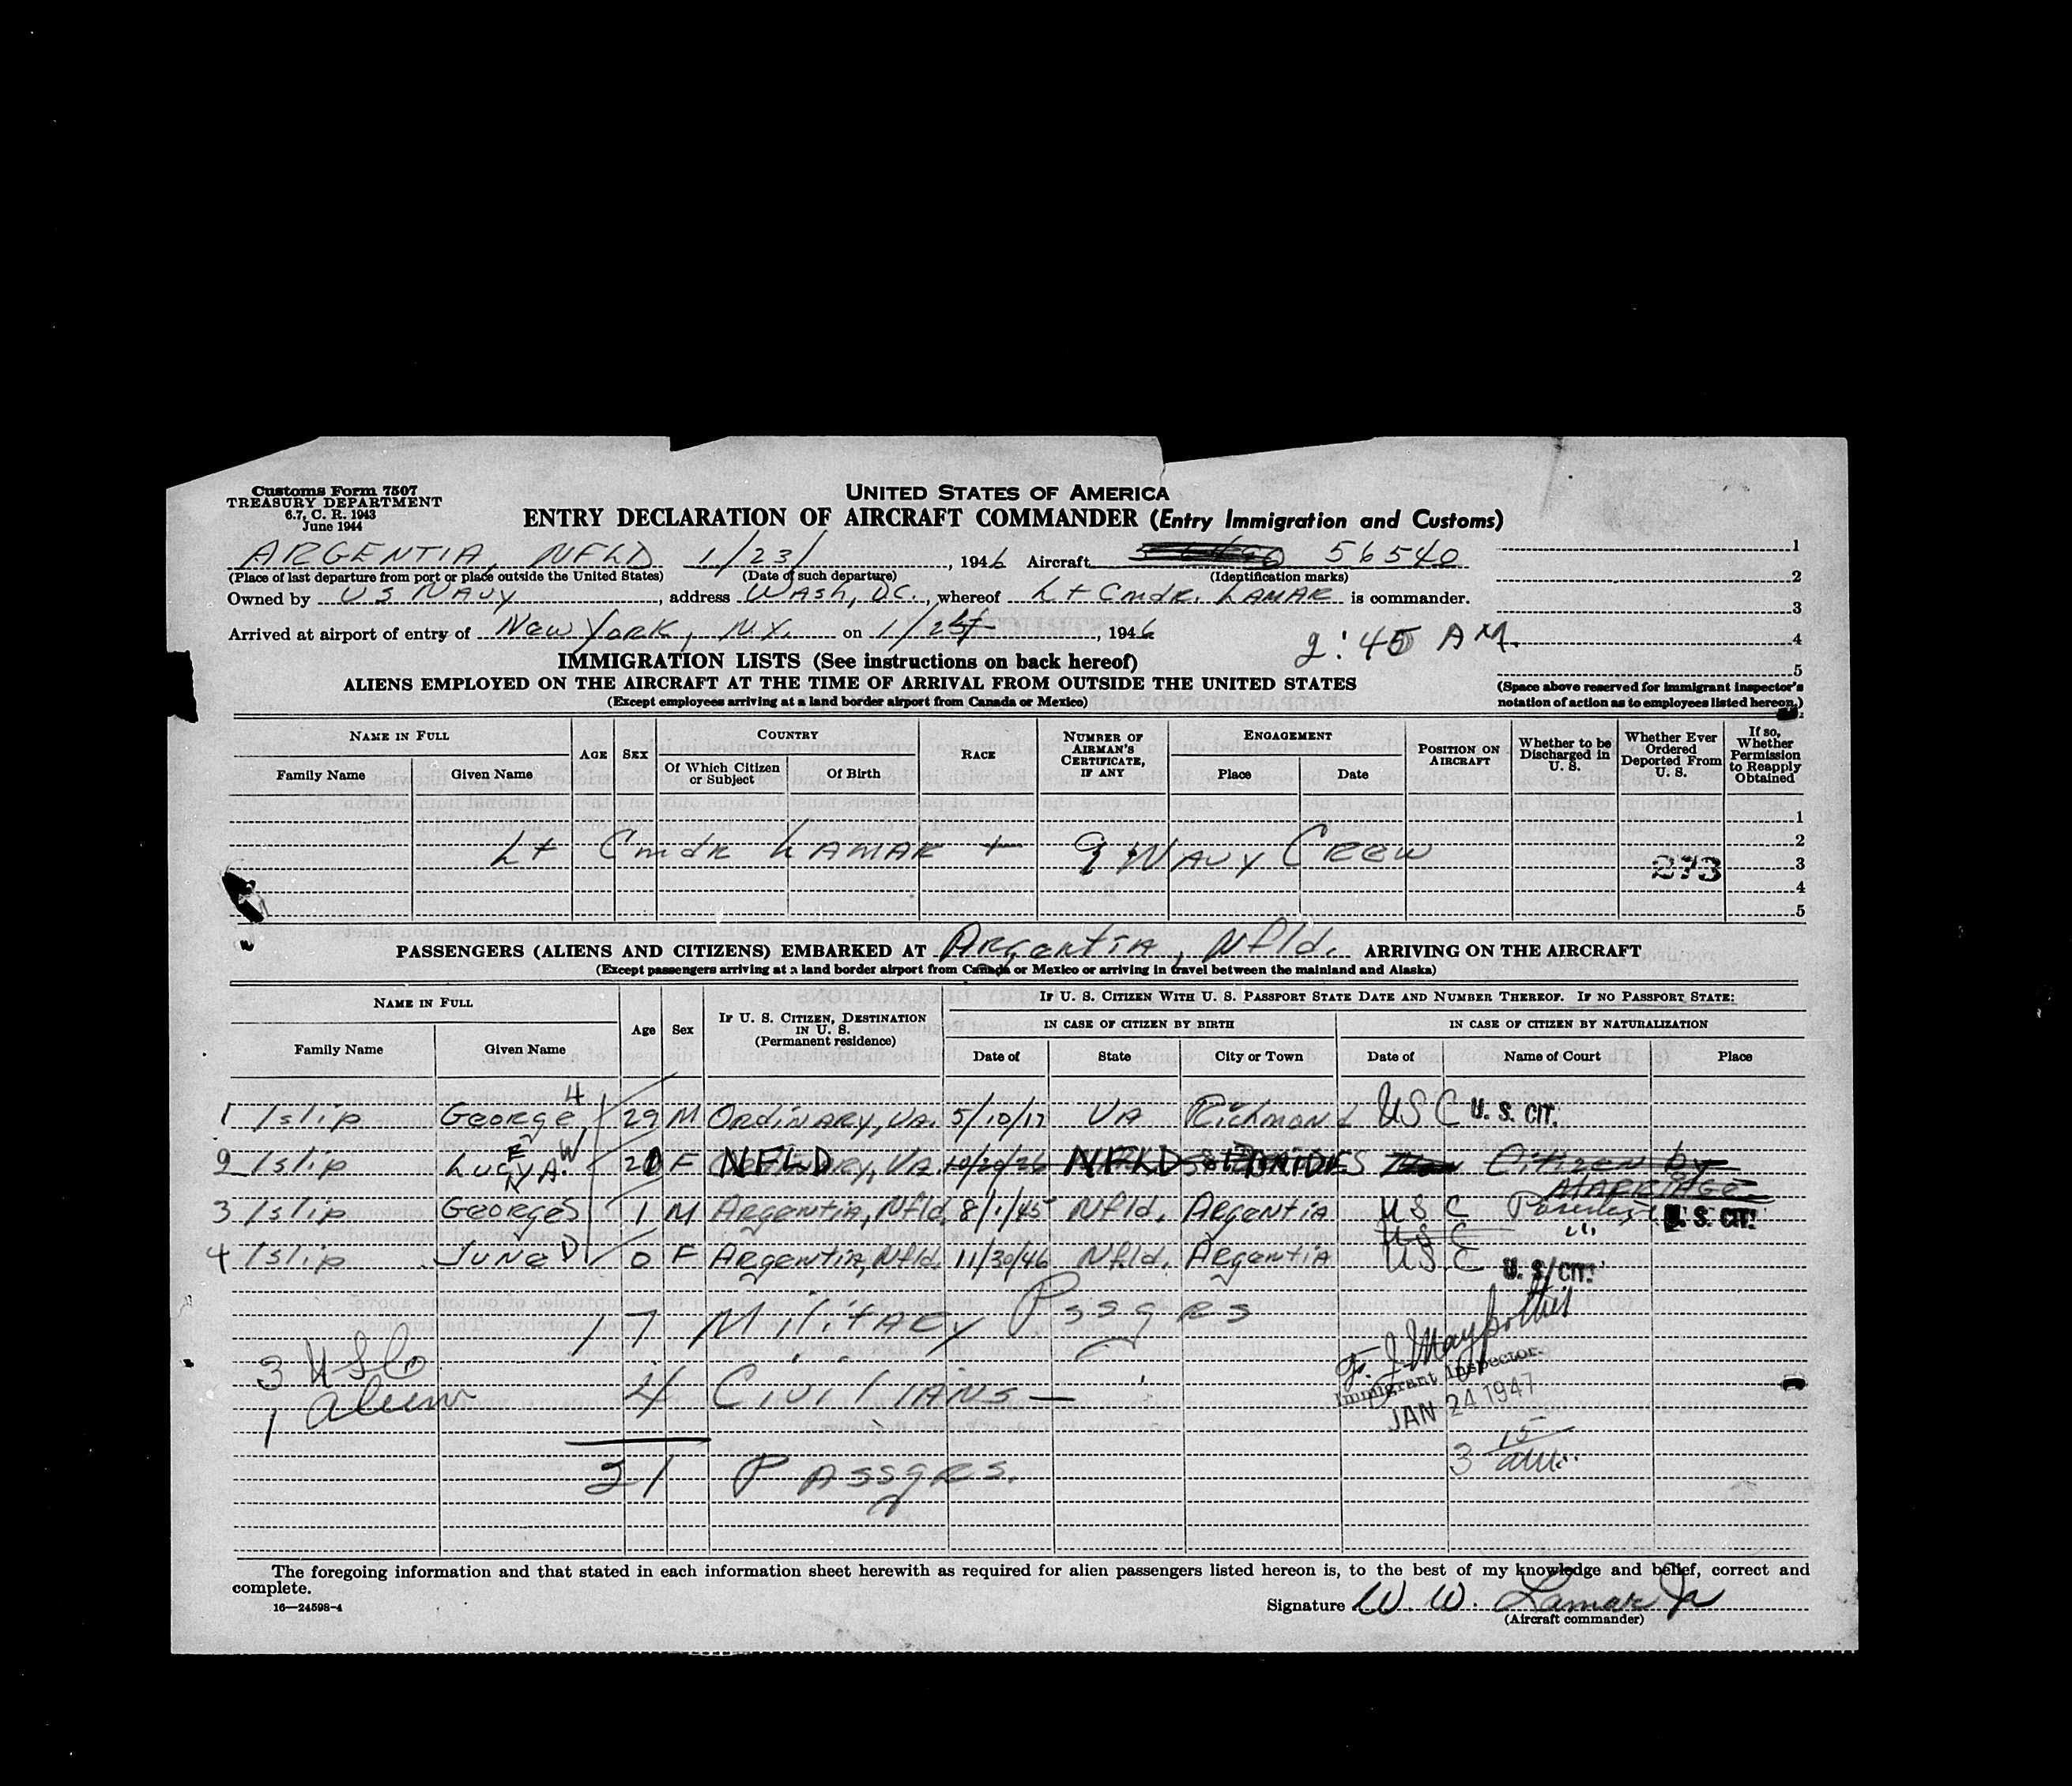 Customs Form 7507
TREASURY DEPARTMENT
6.7, C. R. 1943
June 1944
UNITED STATES OF AMERICA
ENTRY DECLARATION OF AIRCRAFT COMMANDER (Entry Immigration and Customs)
ARGENTIA, NFLD 1/23/, 1946 Aircraft 56540 1
(Place of last departure from port or place outside the United States) (Date of such departure) (Identification marks) 2
Owned by US NAVY, address WASH, DC., whereof Lt Cmdr. LAMAR is commander. 3
Arrived at airport of entry of New York, N.Y. on 1/24, 1946 2:45 AM. 4
5
IMMIGRATION LISTS (See instructions on back hereof)
ALIENS EMPLOYED ON THE AIRCRAFT AT THE TIME OF ARRIVAL FROM OUTSIDE THE UNITED STATES
(Except employees arriving at a land border airport from Canada or Mexico)
(Space above reserved for immigrant inspector's notation of action as to employees listed hereon.)
NAME IN FULL AGE SEX COUNTRY RACE NUMBER OF AIRMAN'S CERTIFICATE, IF ANY ENGAGEMENT POSITION ON AIRCRAFT Whether to be Discharged in U. S. Whether Ever Ordered Deported From U. S. If so, Whether Permission to Reapply Obtained
Family Name Given Name Of Which Citizen or Subject Of Birth Place Date
1
2
Lt Cmdr LAMAR + 9 NAVY Crew 273 3
4
5
PASSENGERS (ALIENS AND CITIZENS) EMBARKED AT Argentia, Nfld. ARRIVING ON THE AIRCRAFT
(Except passengers arriving at a land border airport from Canada or Mexico or arriving in travel between the mainland and Alaska)
NAME IN FULL Age Sex IF U. S. CITIZEN, DESTINATION IN U. S. (Permanent residence) IF U. S. CITIZEN WITH U. S. PASSPORT STATE DATE AND NUMBER THEREOF. IF NO PASSPORT, STATE:
IN CASE OF CITIZEN BY BIRTH IN CASE OF CITIZEN BY NATURALIZATION
Family Name Given Name Date of State City or Town Date of Name of Court Place
1 Islip George H 29 M Ordinary, Va. 5/10/17 VA Richmond USC U. S. CIT.
2 Islip Lucy A. E W F NFLD 10/20/26 NFLD ST BRIDES Citizen by MARRIAGE
3 Islip George S 1 M Argentia, Nfld. 8/1/45 Nfld. Argentia USC U. S. CIT.
USC
4 Islip June D 0 F Argentia, Nfld. 11/30/46 Nfld. Argentia USC U. S. CIT.
17 Military Pssgrs
3 USC
1 alien
4 Civilians —
Immigrant Inspector.
JAN 24 1947
21 Passgrs.
3 15 am
The foregoing information and that stated in each information sheet herewith as required for alien passengers listed hereon is, to the best of my knowledge and belief, correct and
complete.
16—24598-4
Signature W. W. Lamar Jr
(Aircraft commander)